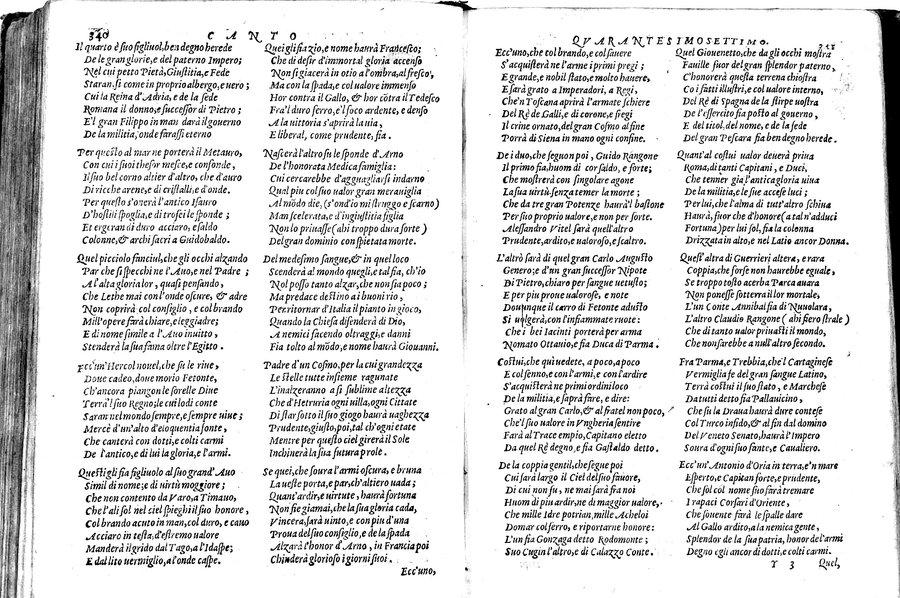 340 CANTO
Il quarto è suo figliuol, ben degno herede
De le gran glorie, e del paterno Impero;
Nel cui petto Pietà, Giustitia, e Fede
Staran, si come in proprio albergo, e uero;
Cui la Reina d'Adria, e de la sede
Romana il donno, e successor di Pietro;
E'l gran Filippo in man darà il gouerno
De la militia, onde farassi eterno
Per questo al mar ne porterà il Metauro,
Con cui i suoi thesor mesce, e confonde,
Il suo bel corno altier d'altro, che d'auro
Di ricche arene, e di cristalli, e d'onde.
Per questo s'onerà l'antico Isauro
D'hostili spoglia, e di trofei le sponde;
Et erger an di duro acciaro, e saldo
Colonne, & archi sacri a Guidobaldo.
Quel picciolo fanciul, che gli occhi alzando
Par che si specchi ne l'Auo, e nel Padre;
A l'alta gloria lor, quasi pensando,
Che Lethe mai con l'onde oscure, & adre
Non coprirà col consiglio, e col brando
Mill'opere farà chiare, e leggiadre;
E di nome simile a l'Auo inuitto,
Stenderà la sua fama oltre l'Egitto.
Ecc'un' Hercol nouel, che fu le riue,
Doue cadeo, doue morio Fetonte,
Ch'ancora piangon le sorelle Diue
Terrà'l suo Regno; le cui lodi conte
Saran nel mondo sempre, e sempre uiue;
Mercè d'un'alto d'eloquentia fonte,
Che canterà con dotti, e colti carmi
De l'antico, e di lui la gloria, e l'armi.
Questi gli fia figliuolo al suo grand'Auo
Simil di nome; e di uirtù maggiore;
Che non contento da Varo, a Timauo,
Che l'ali sol nel ciel spieghi il suo honore,
Col brando acuto in man, col duro, e cauo
Acciaro in testa, d'estremo ualore
Manderà il grido dal Tago, a l'Idaspe;
E dal lito uermiglio, a l'onde caspe.
Quei gli fia zio, e nome haurà Francesco;
Che di desir d'immortal gloria accenso
Non si giacerà in otio a l'ombra, al fresco,
Ma con la spada, e col ualore immenso
Hor contra il Gallo, & hor cōtra il Tedesco
Fra'l duro ferro, e'l foco ardente, e denso
A la uittoria s'aprirà la uia,
E liberal, come prudente, fia.
Nascerà l'altro su le sponde d'Arno
De l'honorata Medica famiglia;
Cui cercarebbe d'agguagliarsi indarno
Qual piu col suo ualor gran merauiglia
Al mōdo die, (s'ond'io mi struggo e scarno)
Man scelerata, e d'ingiustitia figlia
Non lo priuasse (ahi troppo dura forte)
Del gran dominio con spietata morte.
Del medesimo sangue, & in quel loco
Scenderà al mondo quegli, e tal fia, ch'io
Nol posso tanto alzar, che non sia poco;
Ma predace destino a i buoni rio,
Per ritornar d'Italia il pianto in gioco,
Quando la Chiesa difenderà di Dio,
A nemici facendo oltraggi, e danni
Fia tolto al mōdo, e nome haurà Giouanni.
Padre d'un Cosmo, per la cui grandezza
Le stelle tutte insieme ragunate
L'inalzeranno a sì sublime altezza
Che d'Hetruria ogni uilla, ogni Cittate
Di star sotto il suo giogo haurà uaghezza
Prudente, giusto, poi, tal ch'ogni etate
Mentre per questo ciel girerà il Sole
Inchinerà la sua futura prole.
Se quei, che soura l'armi oscura, e bruna
La ueste porta, e par, ch'altiero uada;
Quant'ardir, e uirtute, haurà fortuna
Non fie giamai, che la sua gloria cada,
Vincerà, sarà uinto, e con piu d'una
Proua del suo consiglio, e de la spada
Alzarà l'honor d'Arno, in Francia poi
Chiuderà glorioso i giorni suoi.
Ecc'uno,
QVARANTESIMOSETTIMO.
Ecc'uno, che col brando, e col sauere
S'acquisterà ne l'arme i primi pregi;
E grande, e nobil stato, e molto hauere,
E sarà grato a Imperadori, a Regi,
Che'n Toscana aprirà l'armate schiere
Del Rè de Galli, e di corone, e fregi
Il crine ornato, del gran Cosmo al fine
Porrà di Siena in mano ogni confine.
De i duo, che seguon poi, Guido Rangone
Il primo fia, huom di cor saldo, e forte;
Che mostrerà con singolar agone
La sua uirtù, senza temer la morte;
Che da tre gran Potenze haurà'l bastone
Per suo proprio ualore, e non per sorte.
Alessandro Vitel sarà quell'altro
Prudente, ardito, e ualoroso, e scaltro.
L'altrò sarà di quel gran Carlo Augusto
Genero; e d'un gran successor Nipote
Di Pietro, chiaro per sangue uetusto;
E per piu proue ualorose, e note
Dounque il carro di Fetonte adusto
Si uolgerà, con l'infiammate ruote:
Che i bei Iacinti porterà per arma
Nomato Ottauio, e fia Duca di Parma.
Costui, che quì uedete, a poco, a poco
E col senno, e con l'armi, e con l'ardire
S'acquisterà ne primi ordini loco
De la militia, e saprà fare, e dire:
Grato al gran Carlo, & al fratel non poco,
Che'l suo ualore in Vngheria sentire
Farà al Trace empio, Capitano eletto
Da quel Rè degno, e fia Gastaldo detto.
De la coppia gentil, che segue poi
Cui sarà largo il Ciel del suo fauore,
Di cui non fu, ne mai sarà fra noi
Huom di piu ardir, ne di maggior ualore,
Che mille Idre potrian, mille Acheloi
Domar col ferro, e riportarne honore:
L'un fia Gonzaga detto Rodomonte;
Suo Cugin l'altro, e di Calazzo Conte.
Quel Giouenetto, che da gli occhi mostra
Fauille fuor del gran splendor paterno,
C'honorerà questa terrena chiostra
Co i fatti illustri, e col ualore interno,
Del Rè di Spagna de la stirpe nostra
De l'essercito fia posto al gouerno,
E del titol, del nome, e de la sede
Del gran Pescara fia ben degno herede.
Quant'al costui ualor deuerà priua
Roma, di tanti Capitani, e Duci,
Che tenner già l'antica gloria uiua
De la militia, e le sue accese luci;
Per lui, che l'alma di tutt'altro schiua
Haurà, fuor che d'honore (a tal n'adduci
Fortuna) per lui sol, fia la colonna
Drizzata in alto, e nel Latio ancor Donna.
Quest'altra di Guerrieri altera, e rara
Coppia, che forse non haurebbe eguale,
Se troppo tosto acerba Parca auara
Non ponesse sotterra il lor mortale,
L'un Conte Annibal fia di Nuuolara,
L'altro Claudio Rangone (ahi fiero strale)
Che di tanto ualor priuasti il mondo,
Che non sarebbe a null'altro secondo.
Fra Parma, e Trebbia, che'l Cartaginese
Vermiglia fe del gran sangue Latino,
Terrà costui il suo stato, e Marchese
Da tutti detto fia Pallauicino,
Che su la Draua haurà dure contese
Col Turco infido, & al fin dal domino
Del Veneto Senato, haurà l'Impero
Soura d'ogni suo fante, e Caualiero.
Ecc'un'Antonio d'Oria in terra, e'n mare
Esperto, e Capitan forte, e prudente,
Che sol col nome suo farà tremare
I rapaci Corsari d'Oriente,
Che souente farà le spalle dare
Al Gallo ardito, a la nemica gente,
Splendor de la sua patria, honor del'armi
Degno egli ancor di dotti, e colti carmi.
Y 3 Quel,